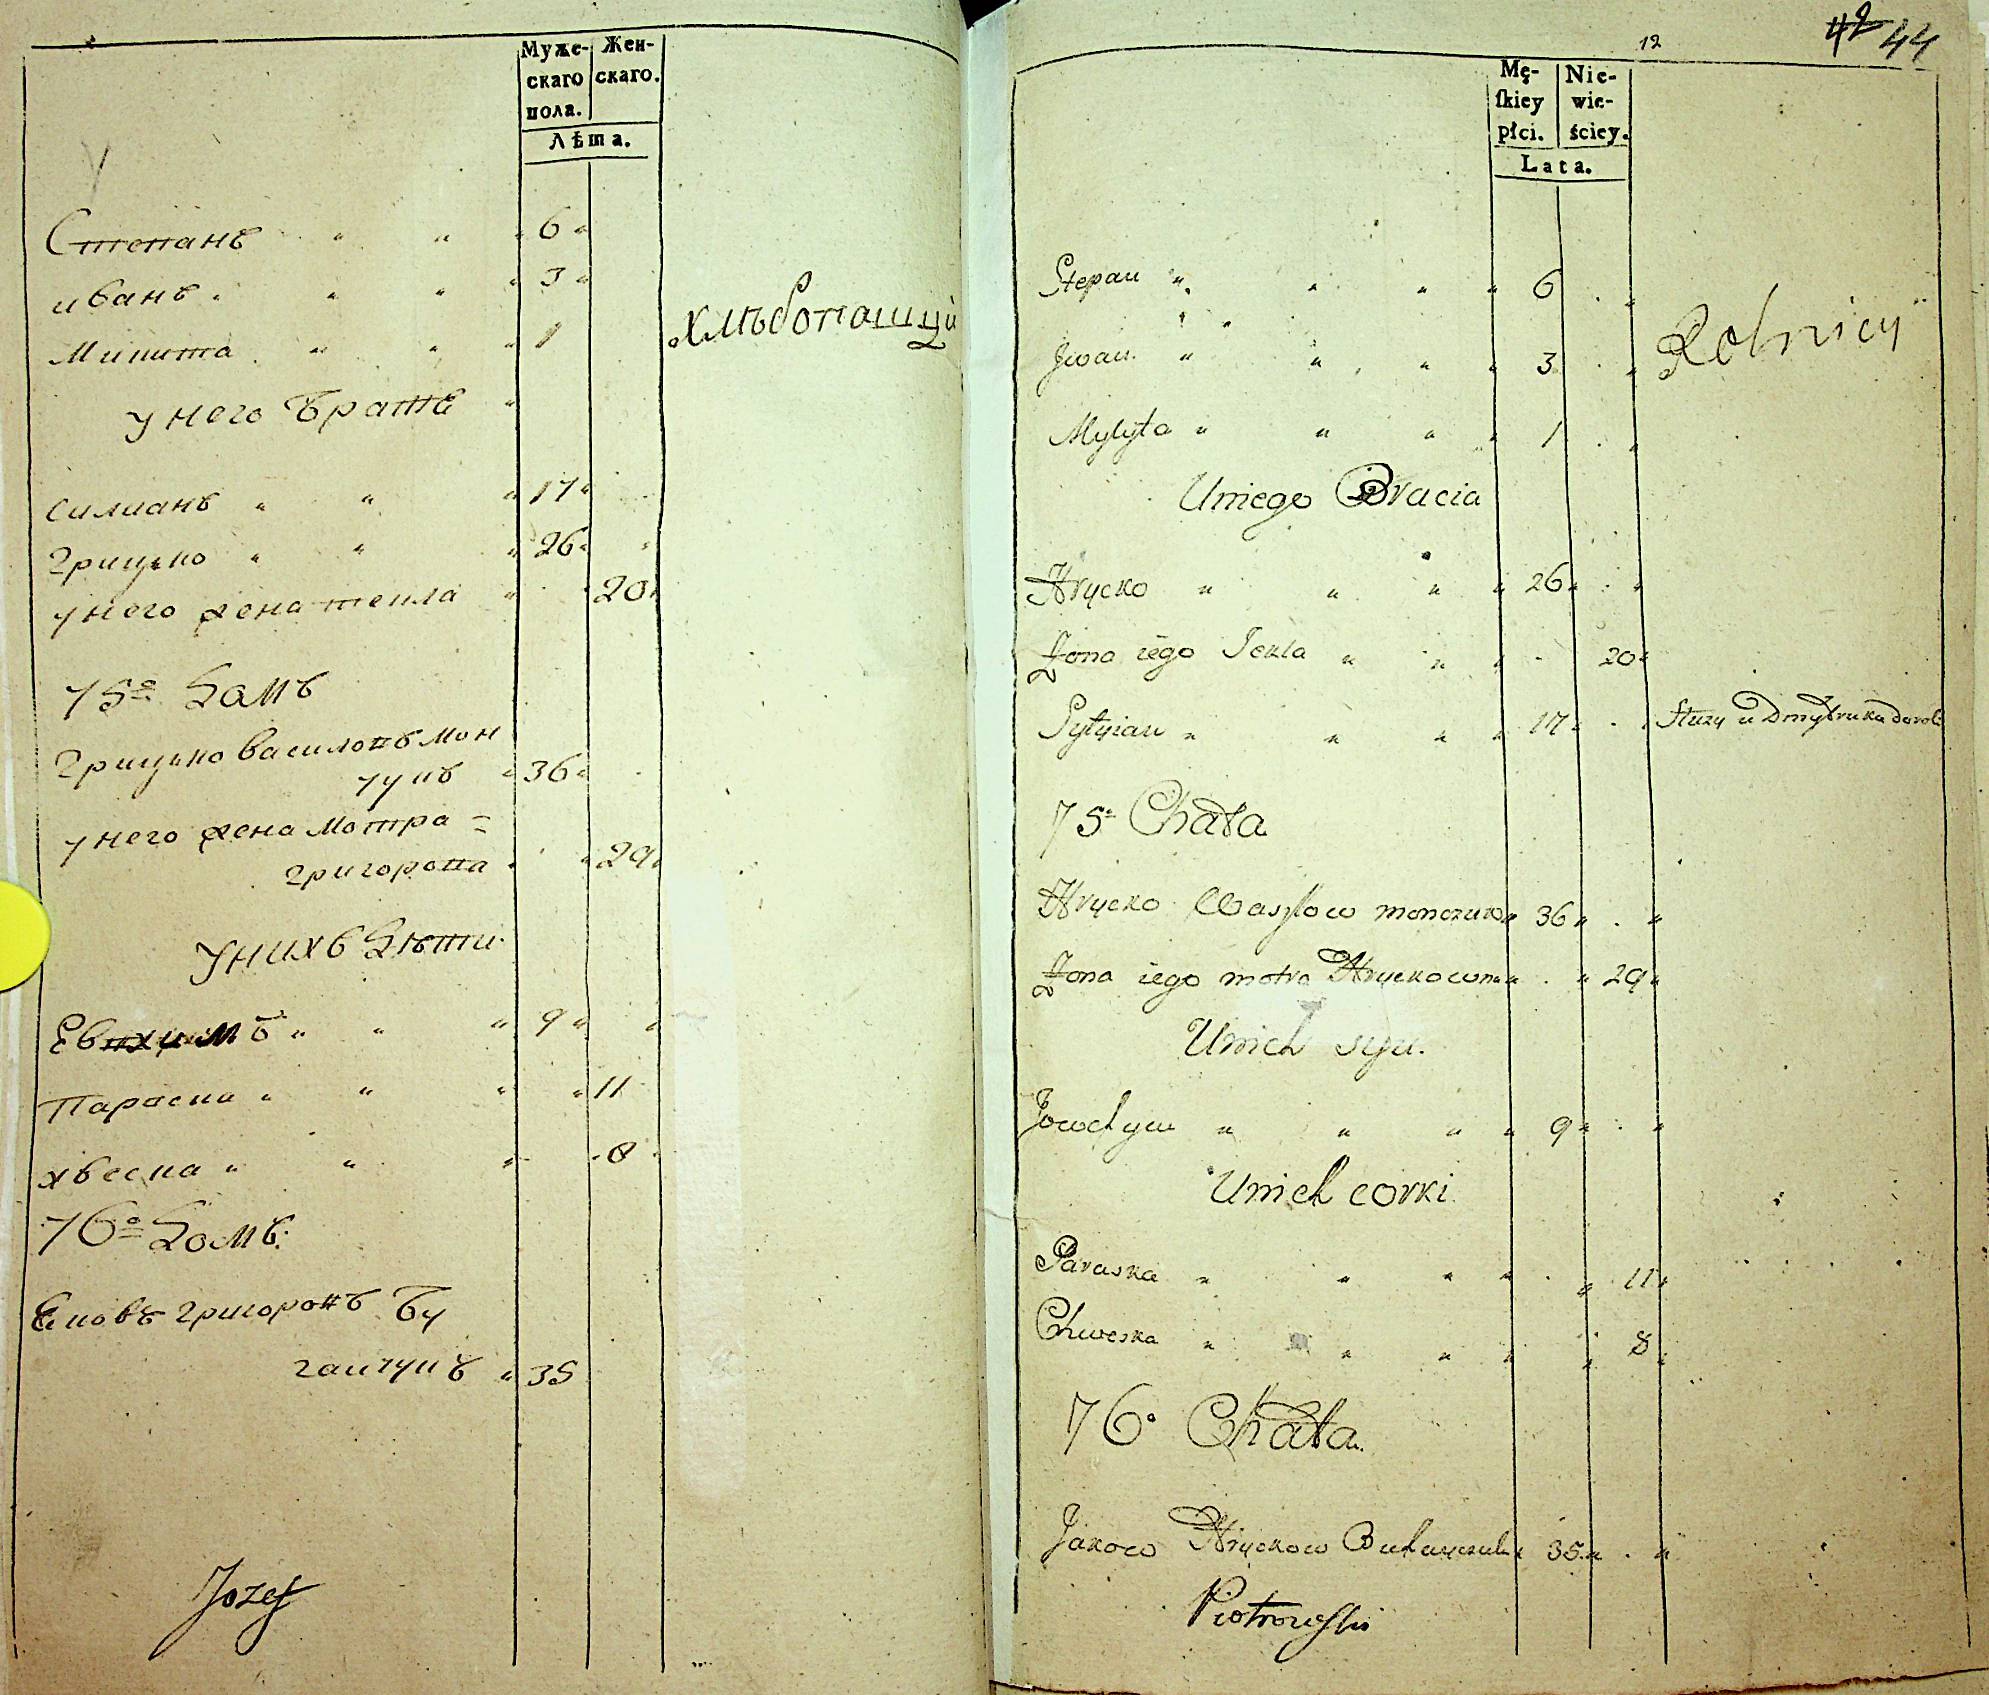 Муже-
скаго
пола.
Жен-
скаго.
Лѣта.
Степанъ " " " 6 "
иванъ " " " 3 "
Микита " " " 1
хлѣбопашцы
у него братъ "
силианъ " " " 17 "
грицько " " " 26 "
у него жена текла " 20 "
75º домъ
грицько василовъ мон
чукъ " 36 "
у него жена мотра =
григорова " " 29 "
у нихъ дѣти
Евхимъ " " " 9 " "
Параска " " " " 11
хвеска " " " 8
76º домъ:
Яковъ григоровъ Бу
гайчукъ " 35
Jozef
12
42 44
Mę-
ſkiey
płci.
Nie-
wie-
ściey.
Lata.
Stepan " " " " 6 "
Jwan " " " " 3 "
Rolnicy
Mykyta " " " " 1 "
Uniego Bracia
Hrycko " " " " 26 " "
Żona iego Tekla " " " 20 "
Sylyian " " " " 17 " Służy u Dmytruka
75º Chata
Hrycko Wasylow monczuk " 36 " "
Żona iego motra Hryckowa " " 29 "
Unich syn.
Jowchym " " " " 9 " "
Unich corki
Paraska " " " " " 11 "
Chweska " " " " " 8 "
76º Chata
Jakow Hryckow Buhayczuk " 35 " "
Piotrowski